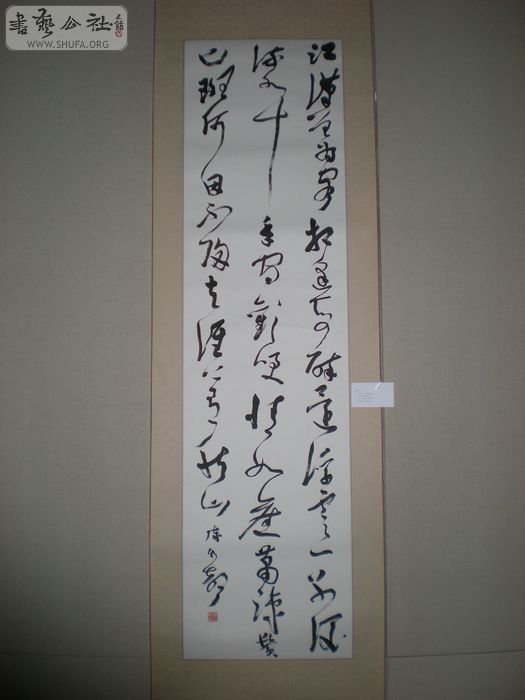 書藝公社
WWW.SHUFA.ORG
江漢曾為客相逢每醉還浮雲一別後
流水十年間歡笑情如舊蕭疎鬢
已斑何因不歸去淮上有秋山